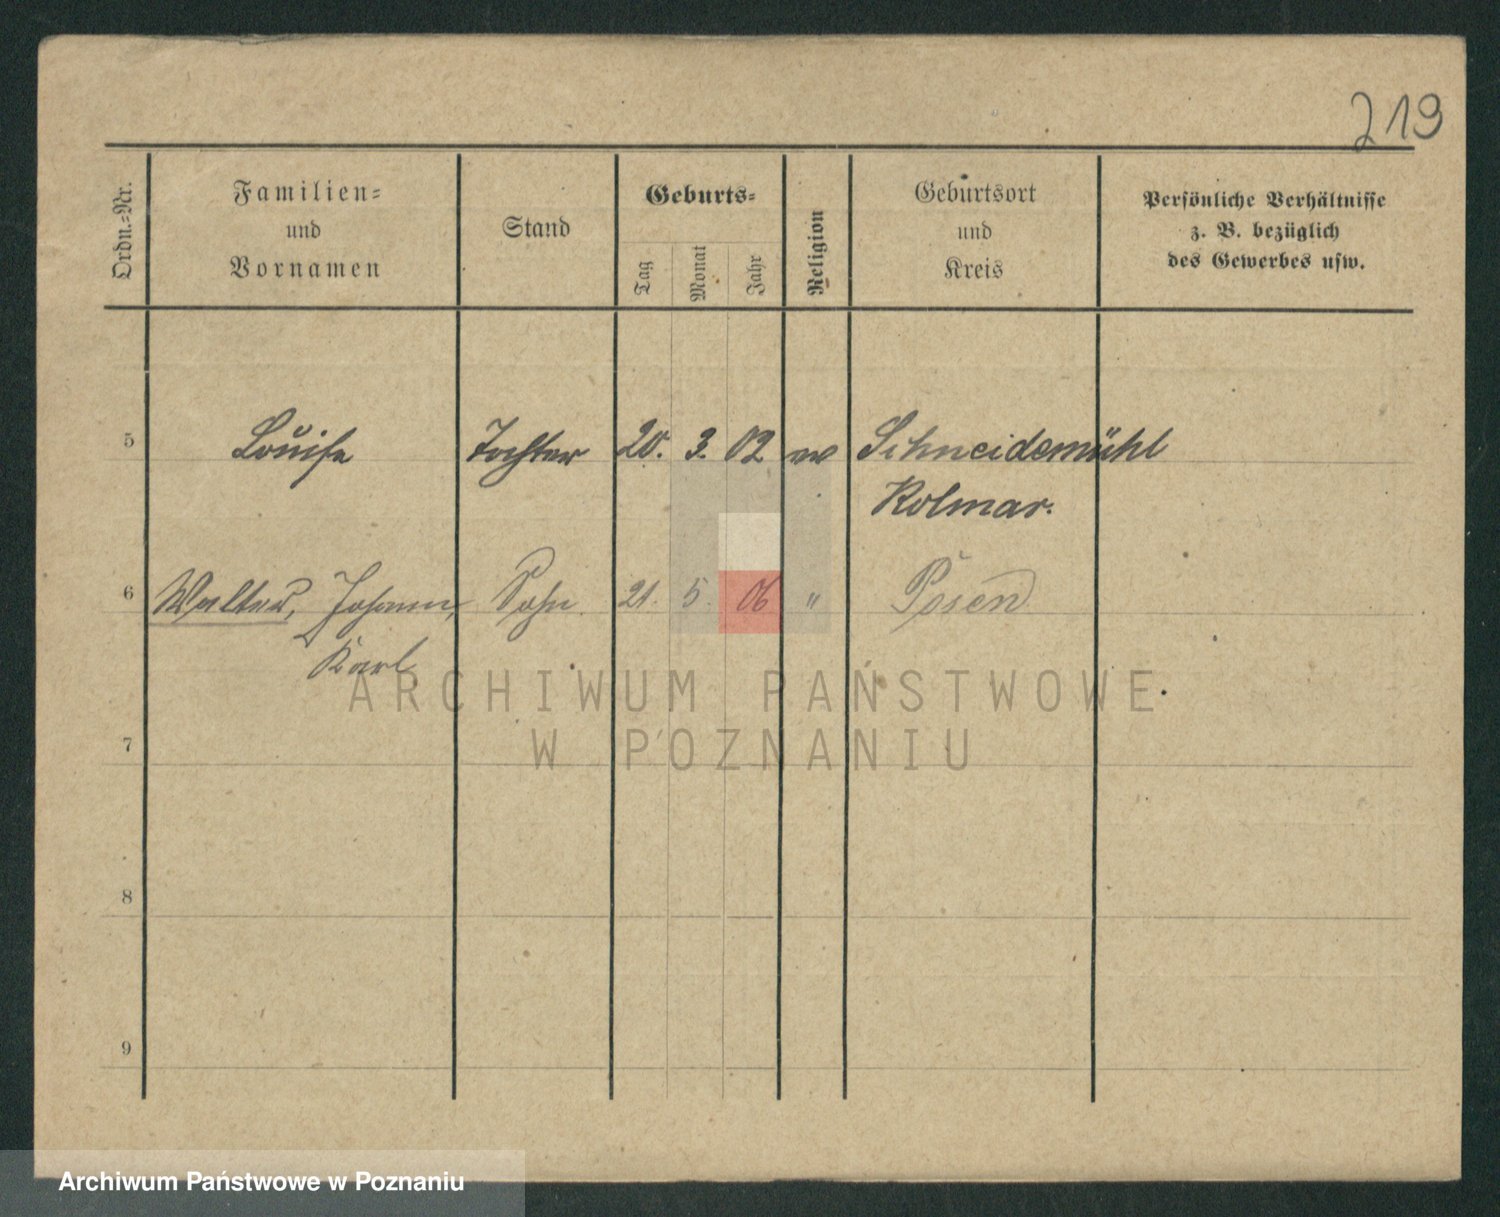 219
Ordn.=Nr.
Familien=
und
Vornamen
Stand
Geburts=
Tag
Monat
Jahr
Religion
Geburtsort
und
Kreis
Persönliche Verhältnisse
z. B. bezüglich
des Gewerbes usw.
5 Louise Tochter 20. 3. 02 Schneidemühl
Kolmar.
6 Walter, Johann, Sohn 21. 5. 06 " Posen
Karl
ARCHIWUM PAŃSTWOWE
W POZNANIU
7
8
9
Archiwum Państwowe w Poznaniu